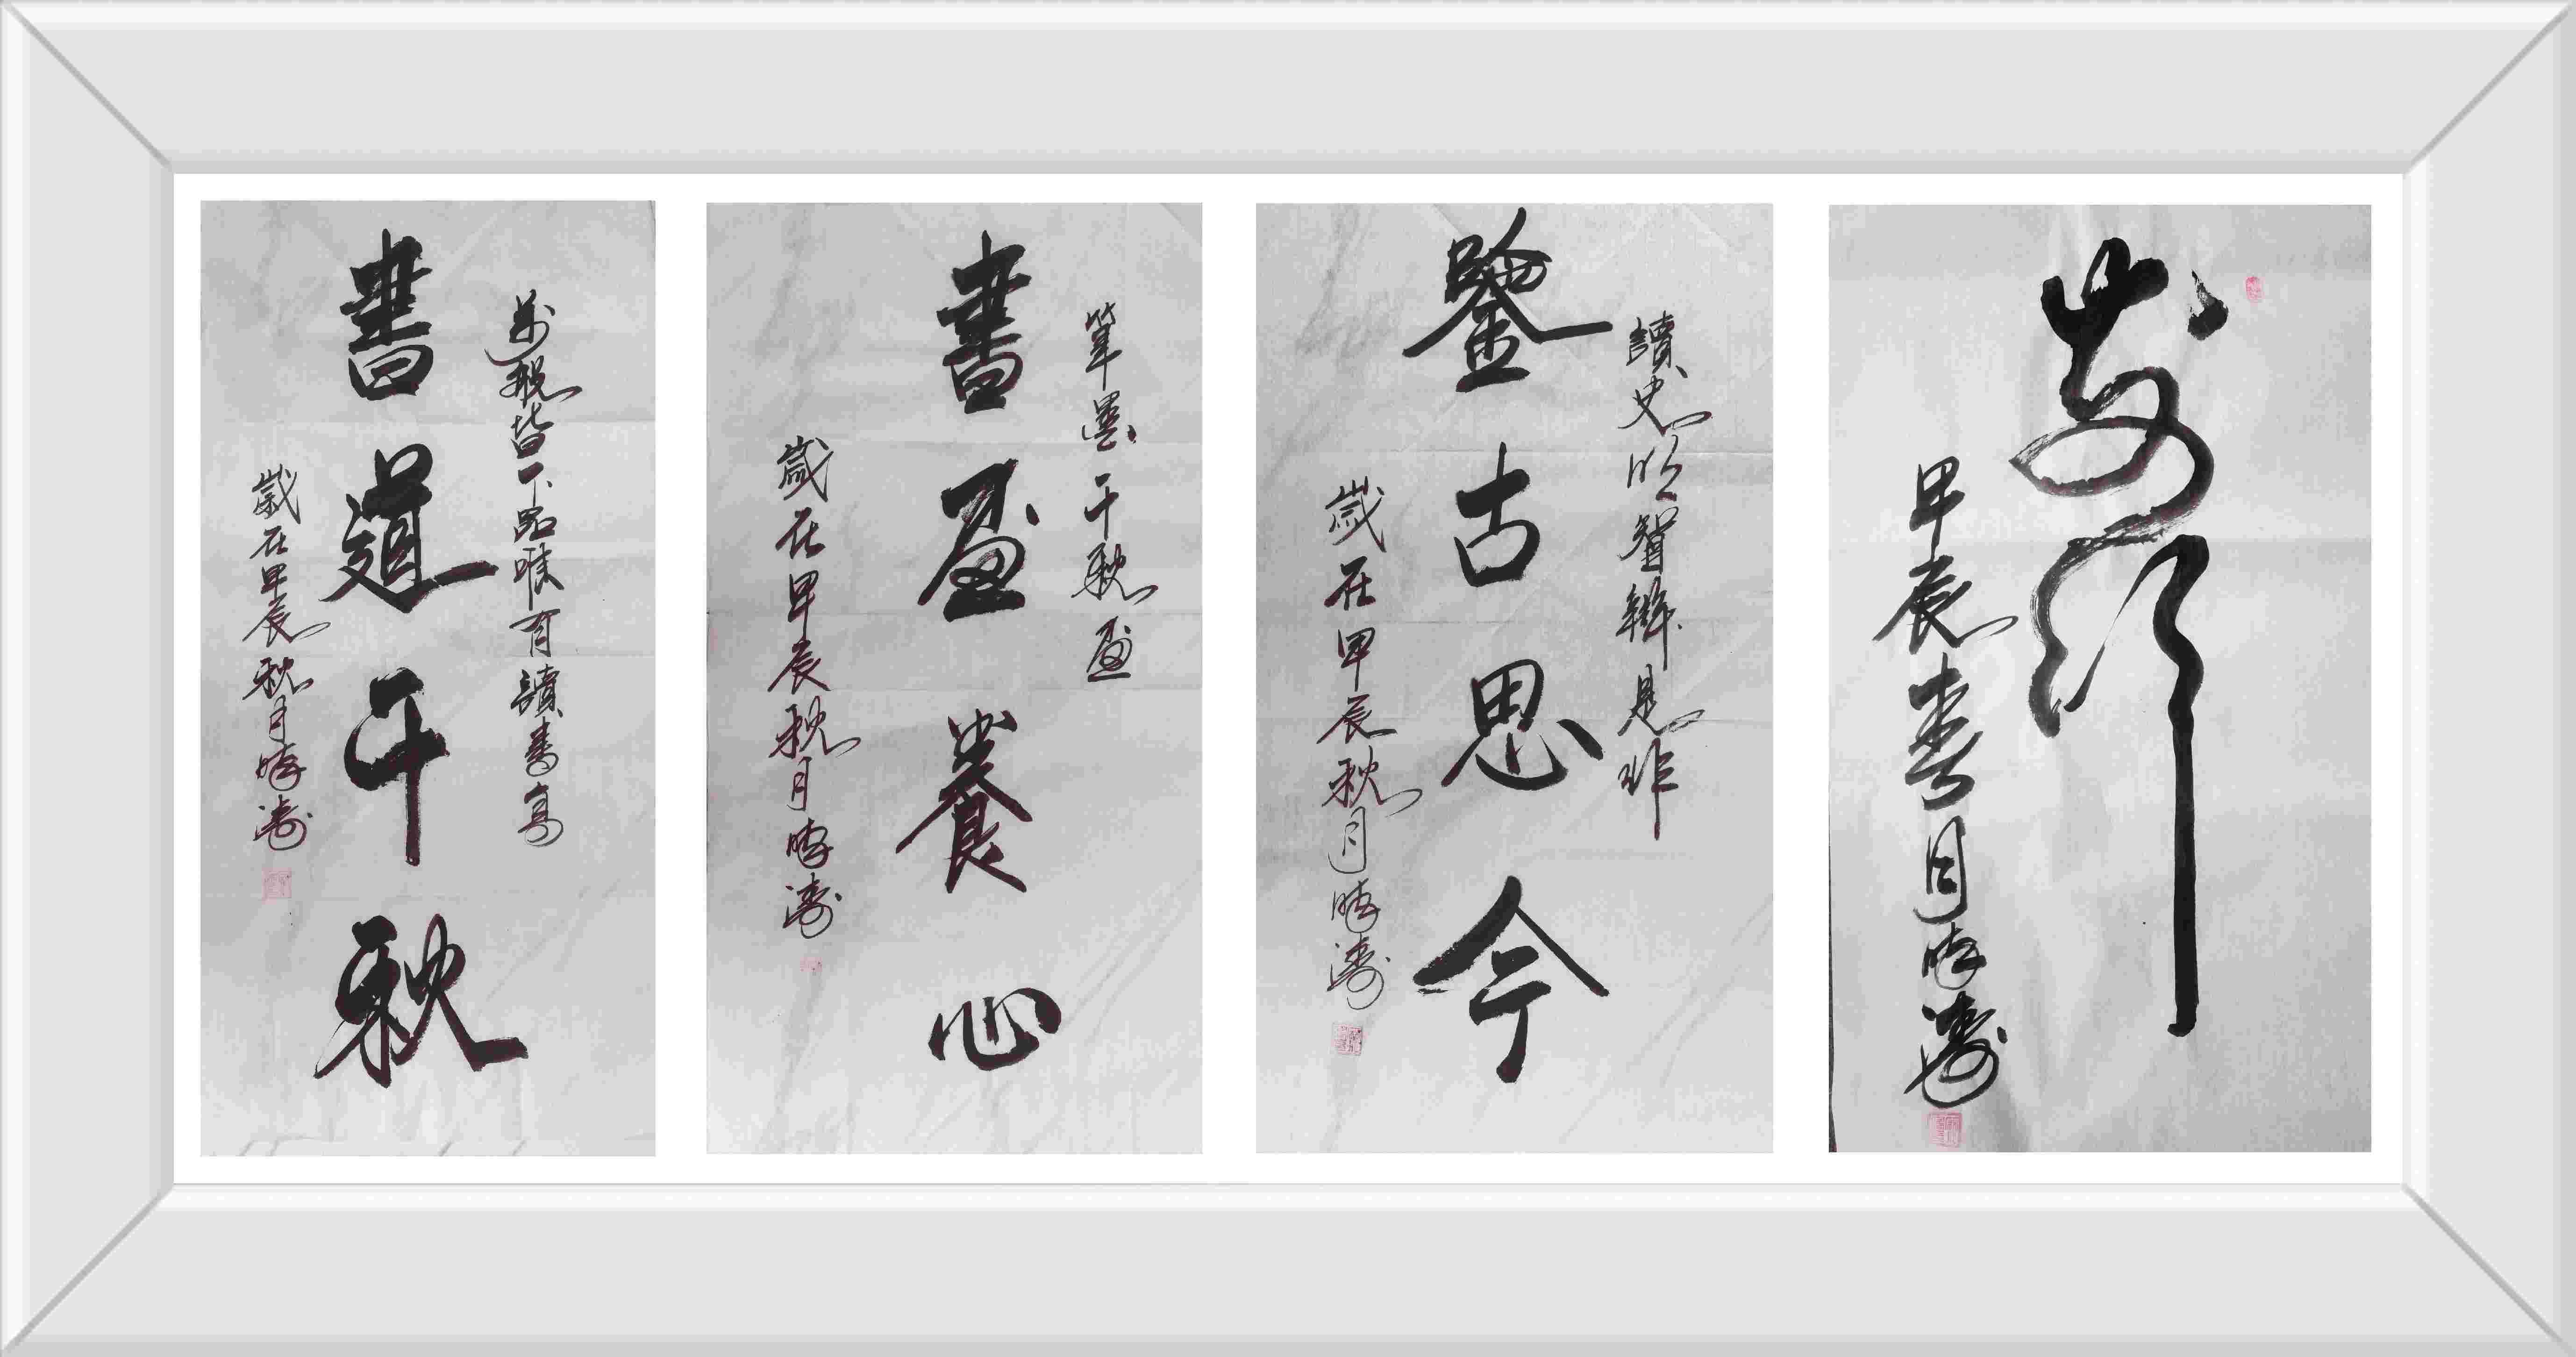 甲辰春月曉濤
讀史明智辨是非
鑒古思今
歲在甲辰秋月曉濤
筆墨千秋盈
書盈養心
歲在甲辰秋月曉濤
萬般皆下品唯有讀書高
書道千秋
歲在甲辰秋月曉濤